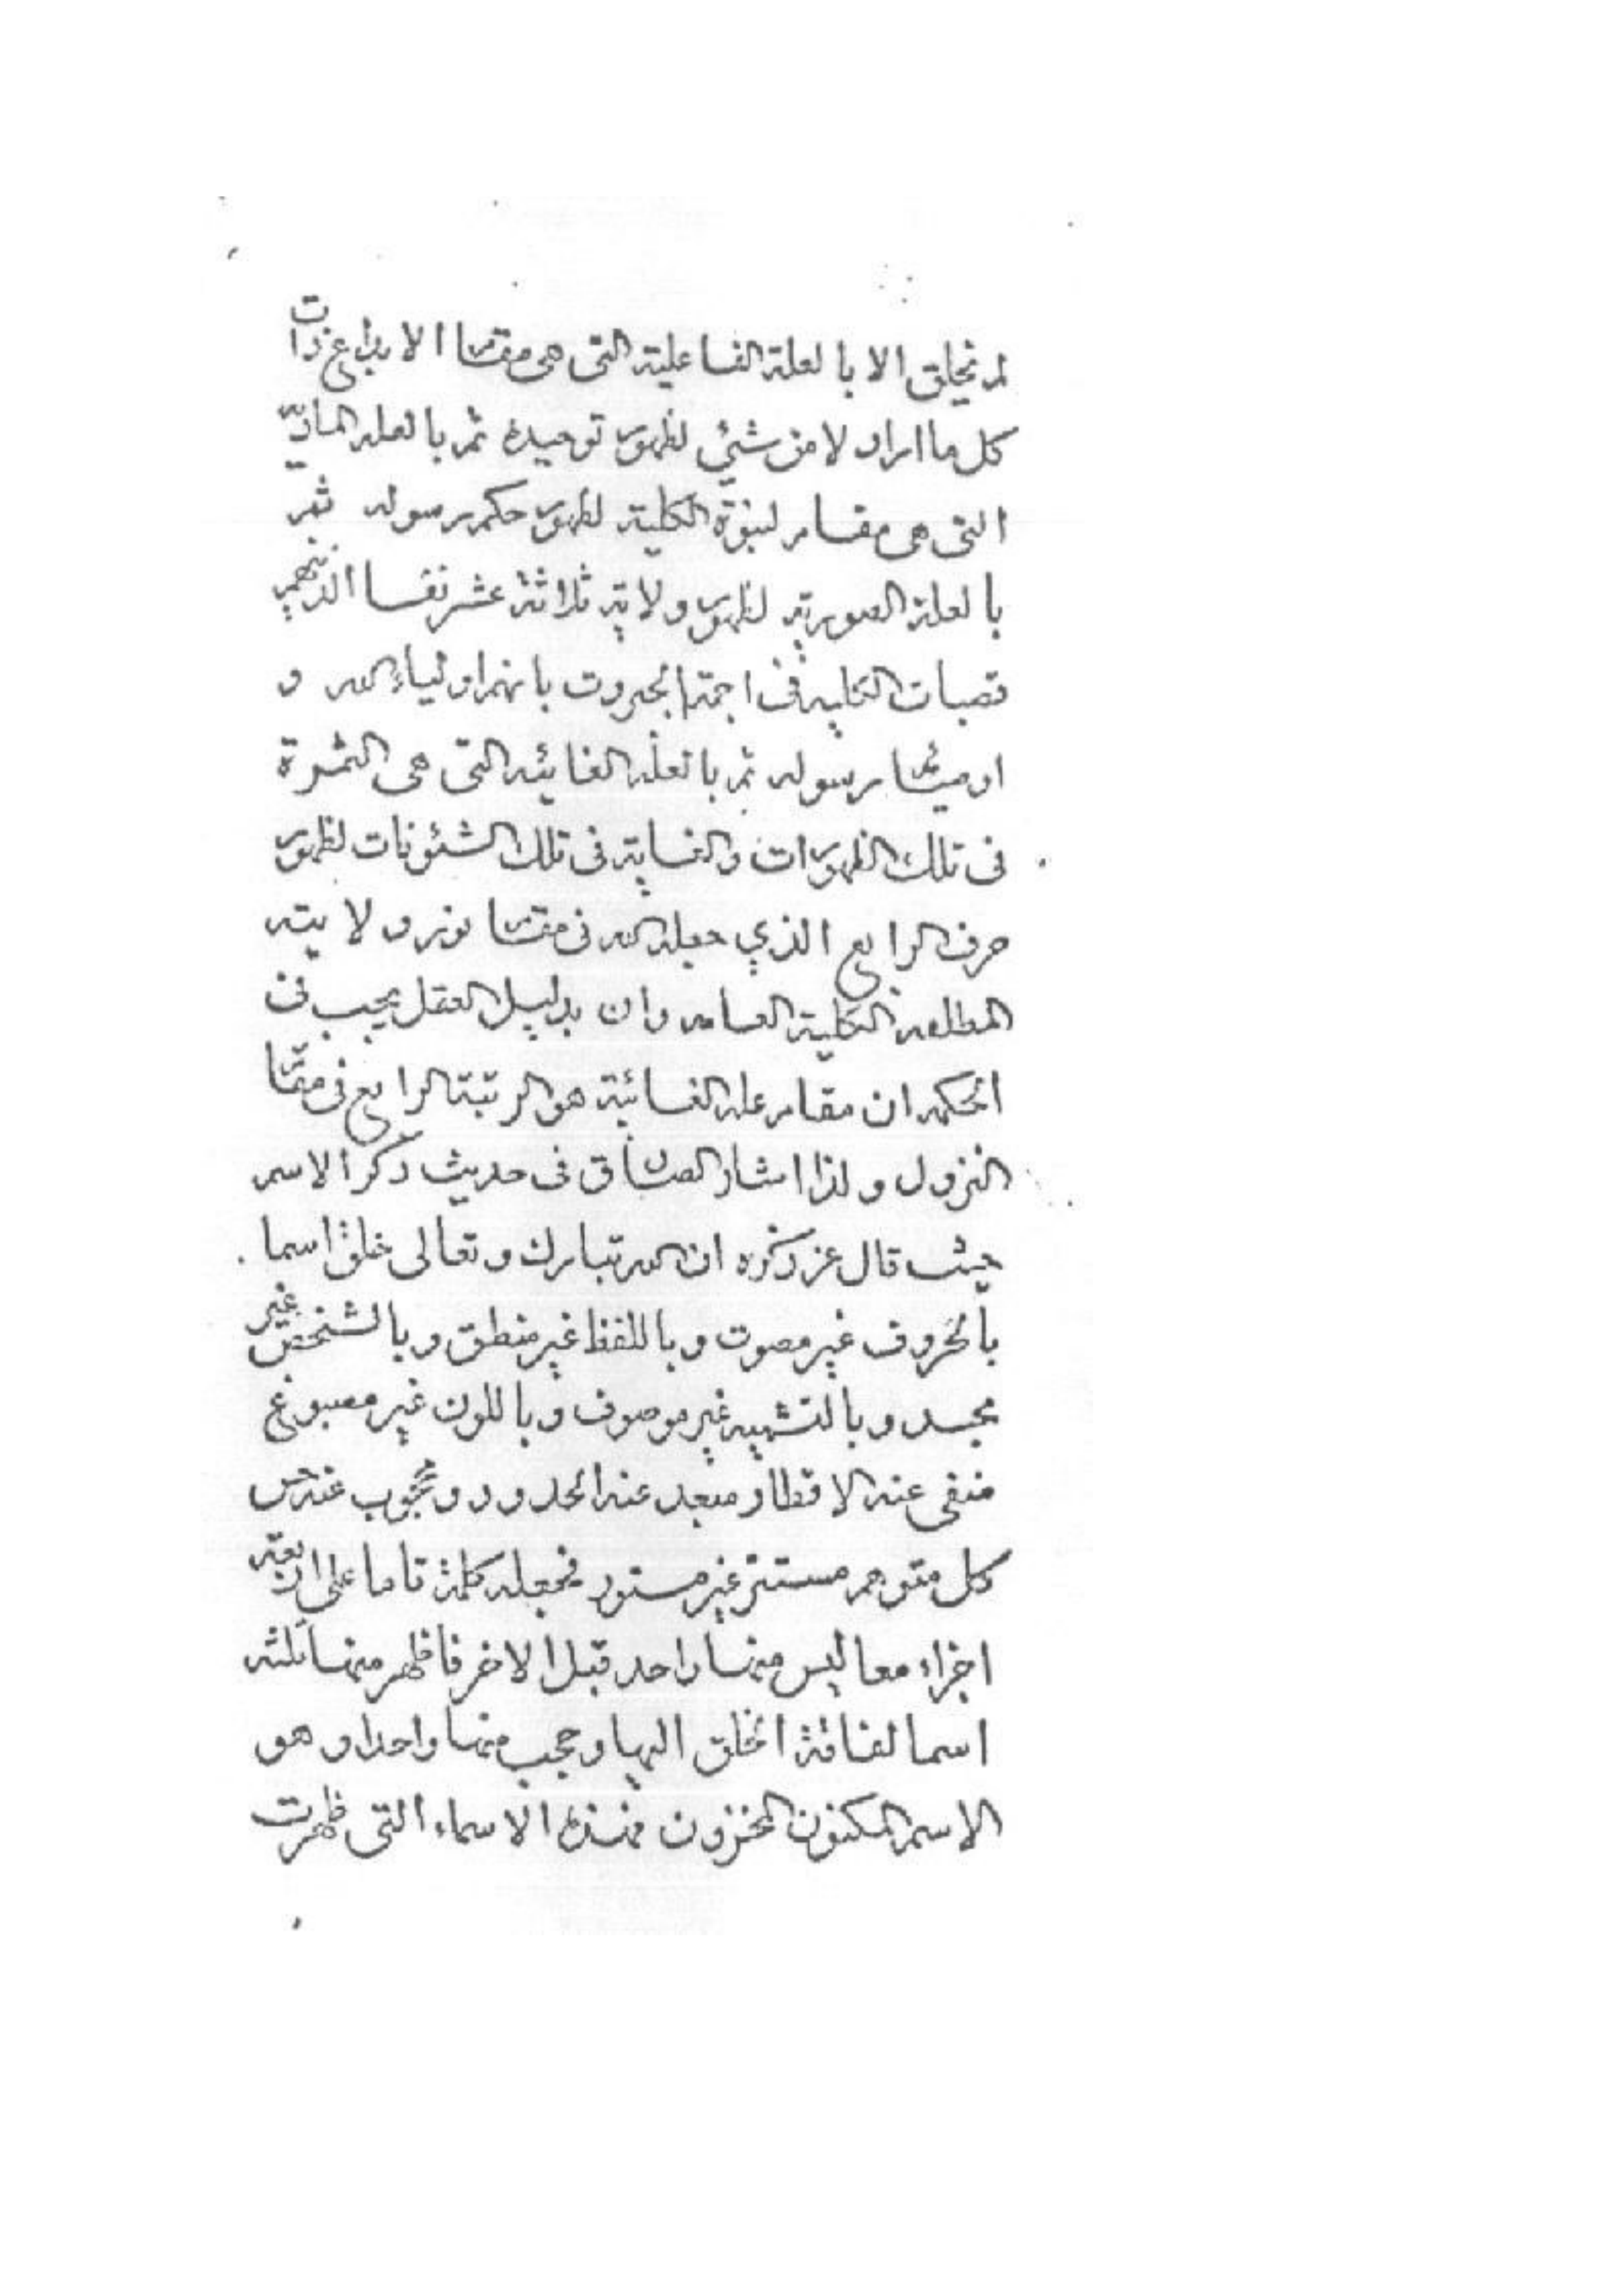 لم يخلق الا بالعلة الفاعلية التى هى مقام الابداع ذات
كل ما اراد لا من شئي لظهور توحيده ثم بالعله الماديّة
التى هى مقام لنبوّة الكلية لظهور حكم رسوله ثم
بالعلة الصورية لظهور ولاية ثلاثة عشر نفسا الذينهم
قصبات الكليه فى اجمة الجبروت بانهم اولياء الله و
اوصياء رسوله ثم بالعله الغائيه التى هى الثمرة
فى تلك الظهورات والغاية فى تلك الشئونات لظهور
حرف الرابع الذي جعله الله فى مقام نوره ولايته
المطلقه الكلية العامه وان بدليل العقل يجب فى
الحكمه ان مقام عله الغائية هو الرتبة الرابع فى مقام
النزول ولذا اشار الصادق فى حديث ذكر الاسم
حيث قال عز ذكره ان الله تبارك وتعالى خلق اسما
بالحروف غير مصوت وباللفظ غير منطق وبالشخص غير
مجسد وبالتشبيه غير موصوف وباللون غير مصبوغ
منفى عنه الاقطار مبعد عنه الحدود ومحجوب عنه حس
كل متوهم مستتر غير مستور فجعله كلمة تاما على اربعة
اجزاء معا ليس منها واحد قبل الاخر فاظهر منها ثلثه
اسما لفاقة الخلق اليها وحجب منها واحدا وهو
الاسم المكنون المخزون فهذه الاسماء التى ظهرت